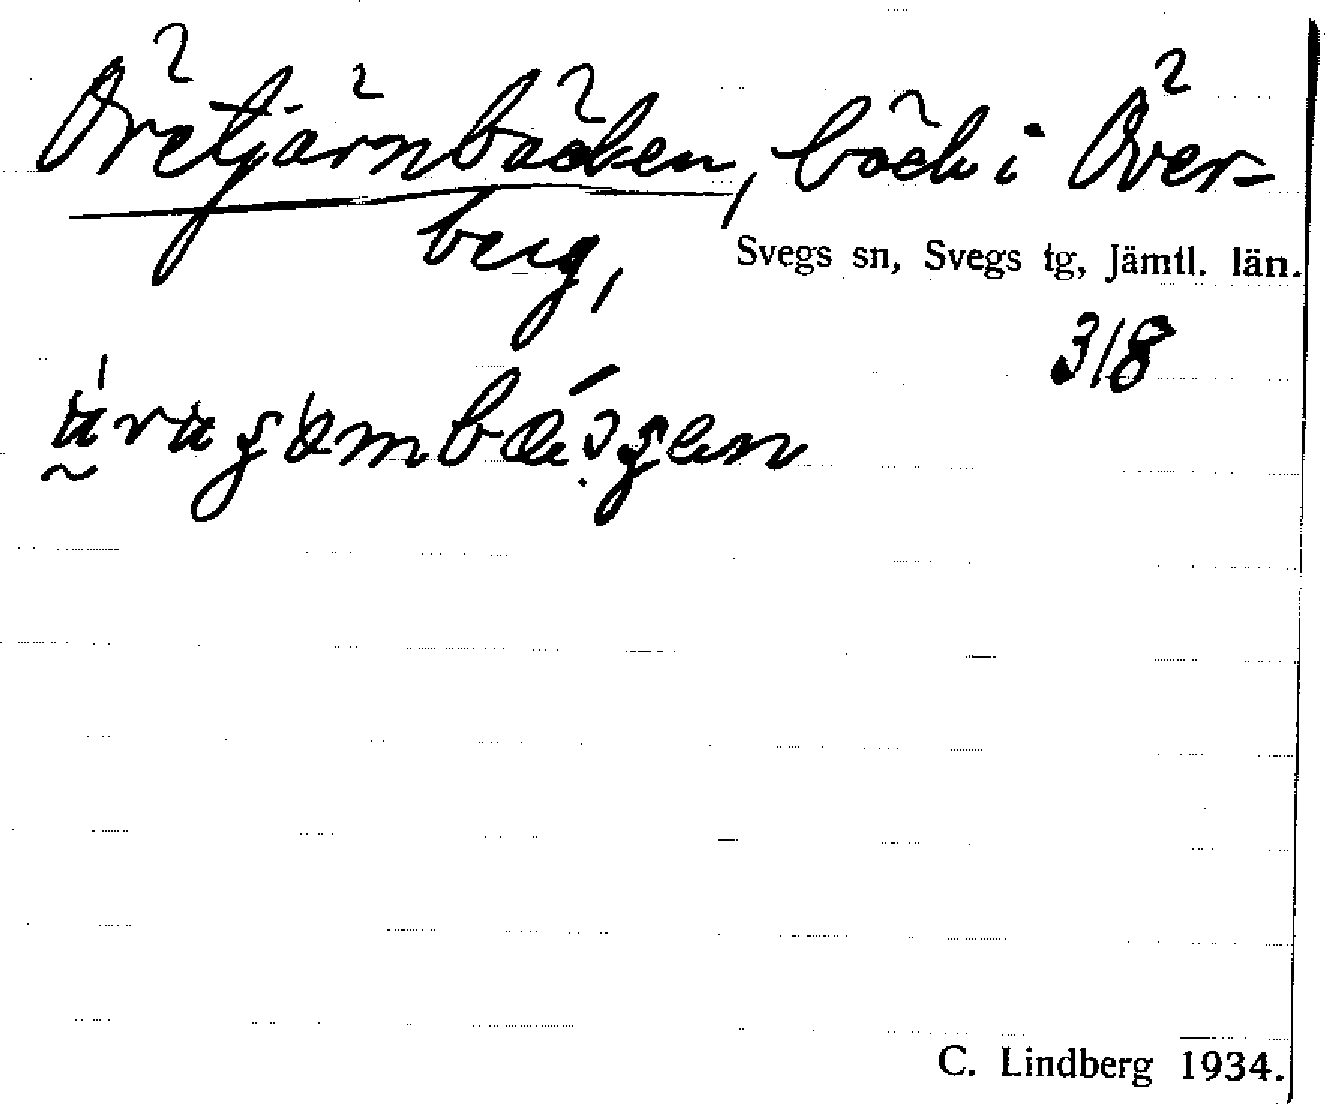 Öretjärnbäcken, bäck i Över-
berg,
Svegs sn, Svegs tg, Jämtl. län.
318
C. Lindberg 1934.